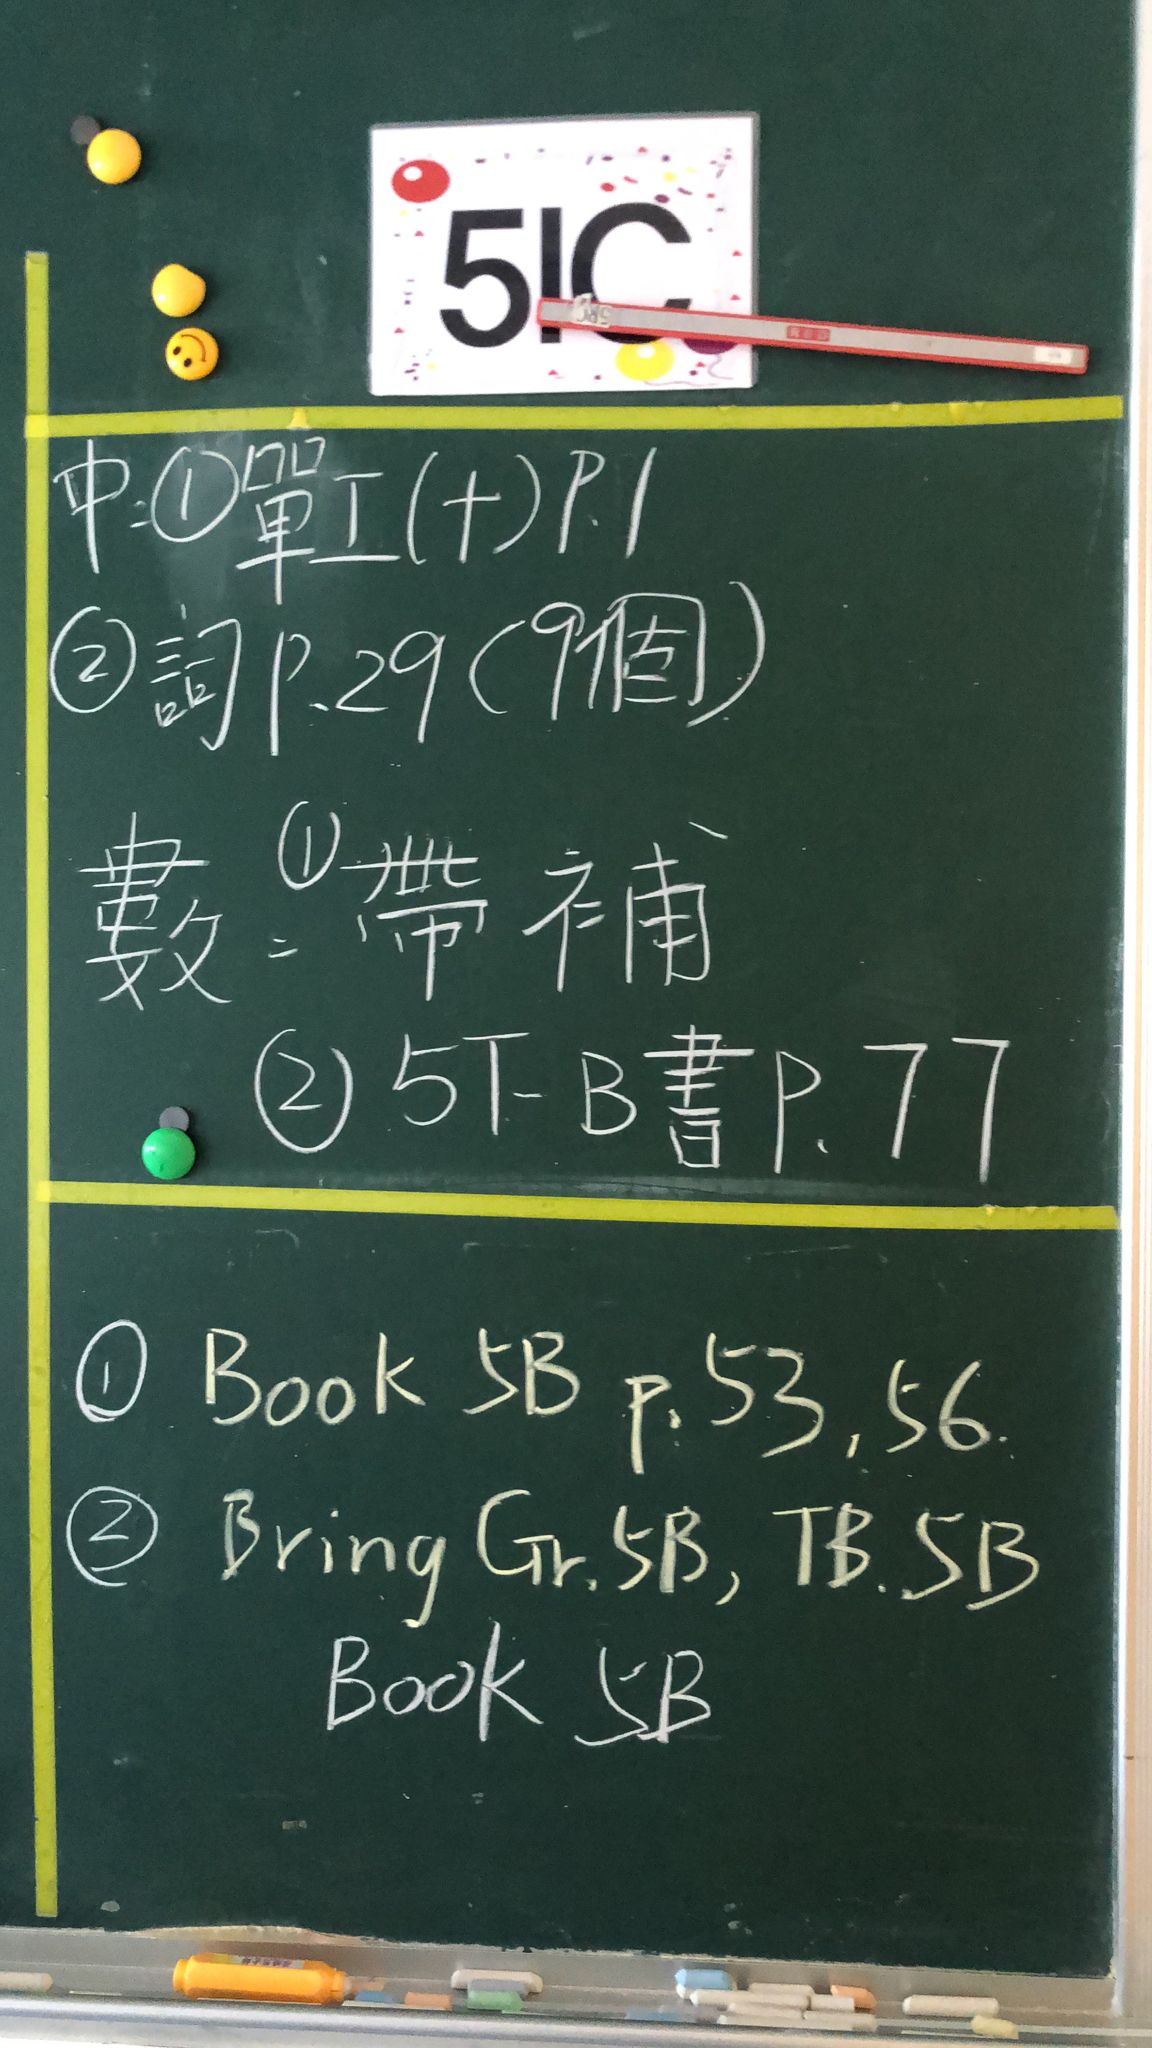 5IC
中:①單工(十)P.1
②詞P.29(9個)
數:①帶補
②5T-B書P.77
① Book 5B p.53,56.
② Bring Gr.5B, TB.5B
Book 5B